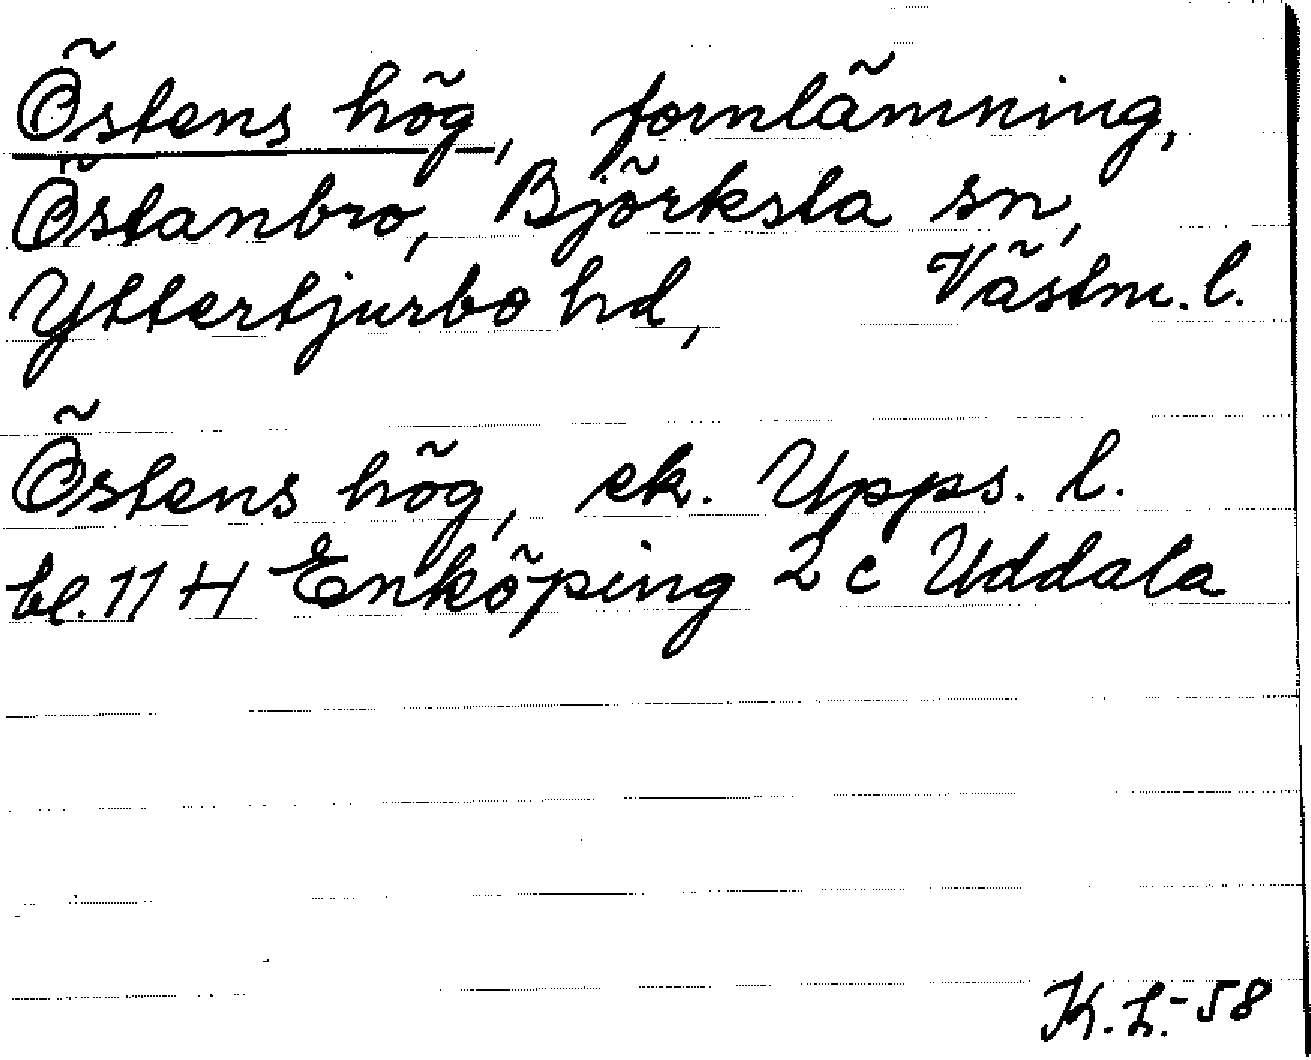 Östens hög, fornlämning,
Östanbro, Björksta sn,
Yttertjurbo hd, Västm. l.
Östens hög, ek. Upps. l.
bl. 11 H Enköping 2 c Uddala
K. L. -58